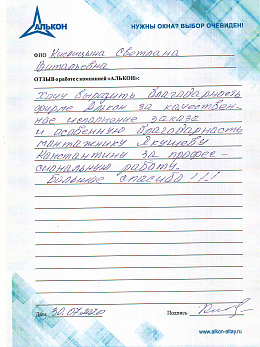 АЛЬКОН
НУЖНЫ ОКНА? ВЫБОР ОЧЕВИДЕН!
ФИО Кислицына Светлана
Витальевна
ОТЗЫВ о работе с компанией «АЛЬКОН»:
Хочу выразить благодарность
фирме Алкон за качествен-
ное исполнение заказа
и особенную благодарность
монтажнику Якушеву
Константину за профес-
сиональную работу.
Большое спасибо!!!
Дата 30.07.2020 Подпись
www.alkon-altay.ru